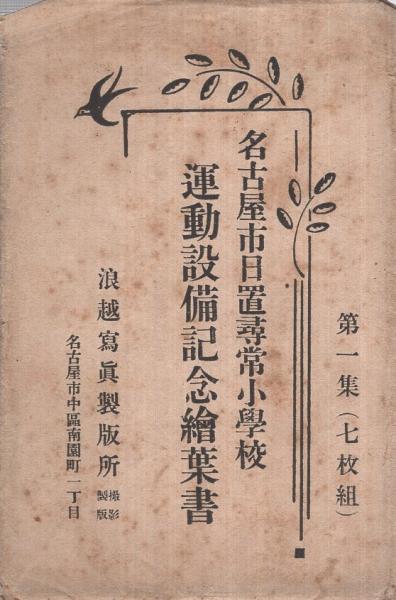 第一集（七枚組）
名古屋市日置尋常小學校
運動設備記念繪葉書
浪越寫眞製版所
撮影
製版
名古屋市中區南園町一丁目